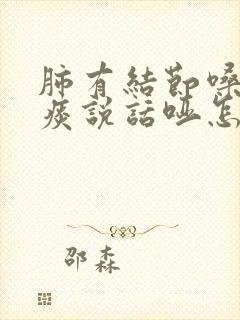 肺有結節嗓
痰説話啞怎
邵森